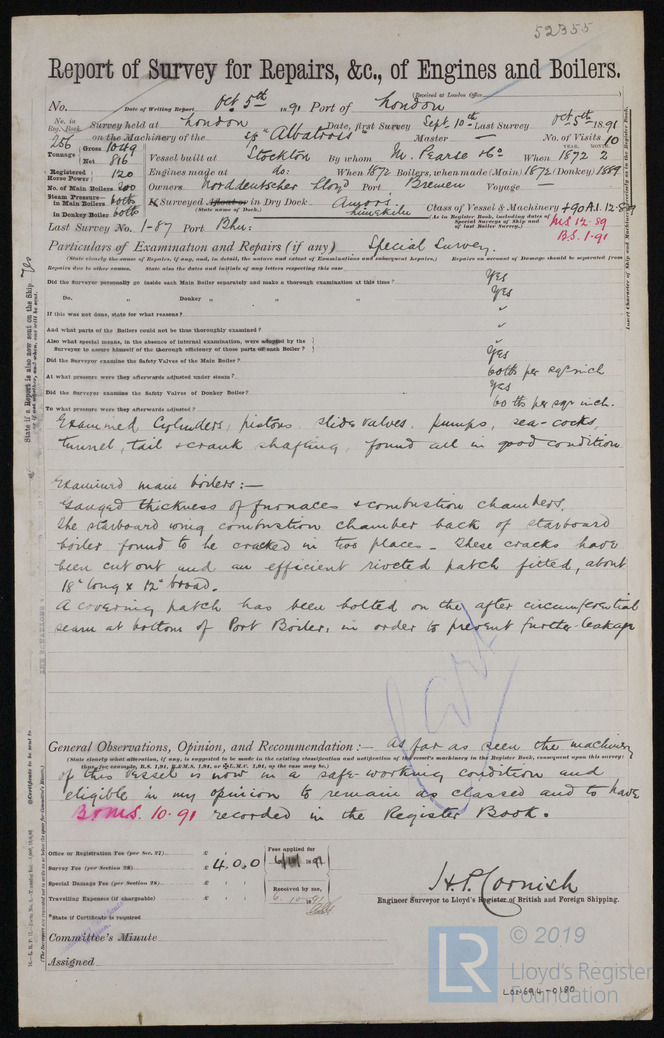 52355
Report of Survey for Repairs, &c., of Engines and Boilers.
(Received at London Office
No. Date of Writing Report Oct 5th 1891 Port of London
No. in Reg. Book. Survey held at London Date, first Survey Sept 10th Last Survey Oct 5th 1891
256 on the Machinery of the "Albatross" Master — No. of Visits 10
Tonnage Gross 1049 Net 816 Vessel built at Stockton By whom M. Pearse & Co When 1872 2
YEAR. MONTH.
Registered Horse Power 120 Engines made at do: When 1872 Boilers, when made (Main) 1872 (Donkey) 1889
No. of Main Boilers 200 Owners Norddeutscher Lloyd Port Bremen Voyage —
Steam Pressure— in Main Boilers 60 lbs If Surveyed Afloat or in Dry Dock
in Donkey Boiler 60 lbs (State name of Dock.) Class of Vessel & Machinery +90A1. 12-89
(As in Register Book, including dates of Special Surveys of Ship and of last Boiler Survey.) MS 12-89
B.S. 1-91
Last Survey No. 1-87 Port Bhn:
Particulars of Examination and Repairs (if any) Special Survey.
(State clearly the cause of Repairs, if any, and, in detail, the nature and extent of Examinations and subsequent Repairs.) Repairs on account of Damage should be separated from
Repairs due to other causes. State also the dates and initials of any letters respecting this case
Did the Surveyor personally go inside each Main Boiler separately and make a thorough examination at this time? Yes
Do. " Donkey " " " Yes
If this was not done, state for what reasons? "
And what parts of the Boilers could not be thus thoroughly examined? "
Also what special means, in the absence of internal examination, were adopted by the
Surveyor to assure himself of the thorough efficiency of those parts of each Boiler? "
Did the Surveyor examine the Safety Valves of the Main Boiler? Yes
At what pressure were they afterwards adjusted under steam? 60 lbs per sqr inch
Did the Surveyor examine the Safety Valves of Donkey Boiler? Yes
To what pressure were they afterwards adjusted? 60 lbs per sqr inch.
Examined Cylinders, pistons, slide valves, pumps, sea-cocks,
tunnel, tail & crank shafting, found all in good condition
Examined main boilers:—
Gauged thickness of furnaces & combustion chambers.
The starboard wing combustion chamber back of starboard
boiler found to be cracked in two places — These cracks have
been cut out and an efficient riveted patch fitted, about
18" long x 12" broad.
A covering patch has been bolted on the after circumferential
seam at bottom of Port Boiler, in order to prevent further leakage
General Observations, Opinion, and Recommendation:— As far as seen the machinery
(State clearly what alteration, if any, is suggested to be made in the existing classification and notification of the vessel's machinery in the Register Book, consequent upon this survey:
thus, for example, B.S. 1,91, B.&M.S. 1,91, or ✠L.M.C. 1,91, as the case may be.)
of this vessel is now in a safe working condition and
eligible in my opinion to remain as classed and to have
B & MS. 10.91 recorded in the Register Book.
Office or Registration Fee (per Sec. 27) £
Survey Fee (per Section 28) £ 4.0.0
Special Damage Fee (per Section 28) £
Travelling Expenses (if chargeable) £
Fees applied for
6/10/1891
Received by me,
6.10.91
*State if Certificate is required
H.P. Cornish
Engineer Surveyor to Lloyd's Register of British and Foreign Shipping.
Committee's Minute
Assigned
State if a Report is also now sent on the Ship Yes
LR
© 2019
Lloyd's Register
Foundation
LON694-0180